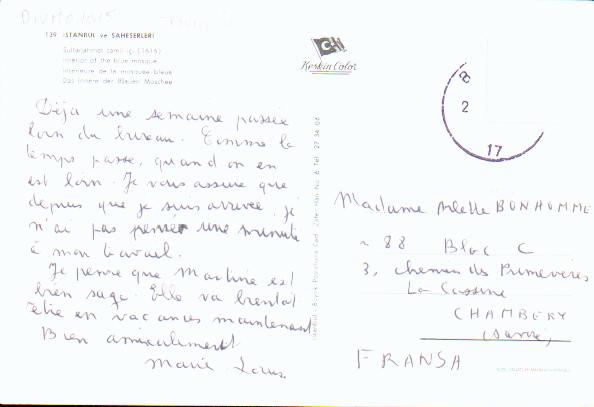 139 ISTANBUL ve ŞAHESERLERİ
Sultanahmet camii içi (1616)
Interior of the blue mosque
Intérieure de la mosquée bleue
Das Innere der Blauen Moschee
Keskin Color
8
2
17
Déjà une semaine passée
loin du bureau. Comme le
temps passe, quand on en
est loin. Je vous assure que
depuis que je suis arrivée, je
n'ai pas penser une minute
à mon travail.
Je pense que Martine est
bien sage. Elle va bientôt
être en vacances maintenant
Bien amicalement
Marie
Madame Arlette BONHOMME
88 Bloc C
3, chemin des Primevères
La Cassine
CHAMBERY
(Savoie)
FRANSA